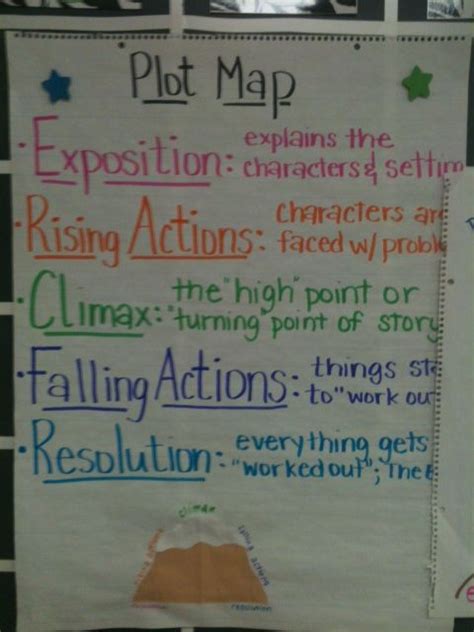 Plot Map
explains the
• Exposition: characters & settin
characters ar
• Rising Actions: faced w/ probl
the "high" point or
• Climax: "turning" point of story
things st
• Falling Actions: to "work ou
everything gets
• Resolution: "worked out"; The
climax
falling actions
resolution